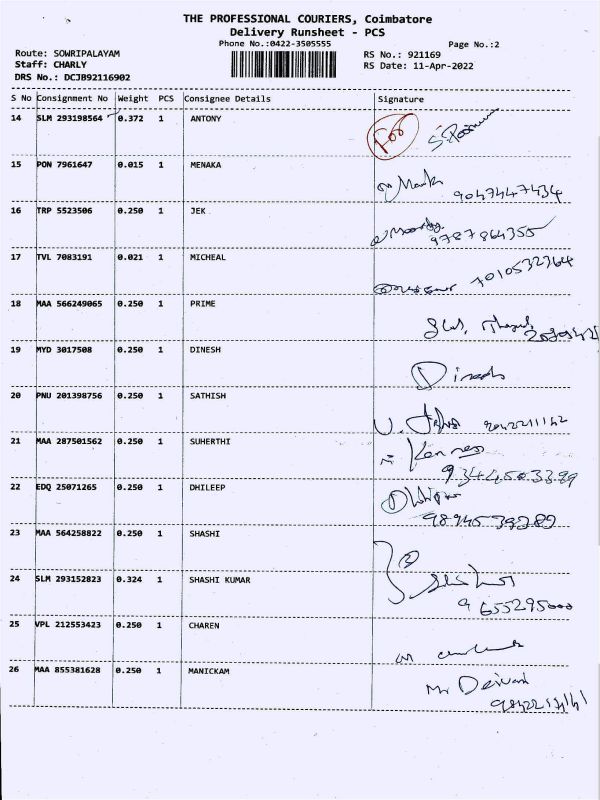 THE PROFESSIONAL COURIERS, Coimbatore
Delivery Runsheet - PCS
Phone No.:0422-3505555
Page No.:2
Route: SOWRIPALAYAM
RS No.: 921169
Staff: CHARLY
RS Date: 11-Apr-2022
DRS No.: DCJB92116902
S No Consignment No Weight PCS Consignee Details Signature
14 SLM 293198564 0.372 1 ANTONY
15 PON 7961647 0.015 1 MENAKA
9047447434
16 TRP 5523506 0.250 1 JEK
9787864355
17 TVL 7083191 0.021 1 MICHEAL
7010532364
18 MAA 566249065 0.250 1 PRIME
19 MYD 3017508 0.250 1 DINESH
Dinesh
20 PNU 201398756 0.250 1 SATHISH
9042211142
21 MAA 287501562 0.250 1 SUHERTHI
9344503399
22 EDQ 25071265 0.250 1 DHILEEP
9894539289
23 MAA 564258822 0.250 1 SHASHI
24 SLM 293152823 0.324 1 SHASHI KUMAR
9655295000
25 VPL 212553423 0.250 1 CHAREN
26 MAA 855381628 0.250 1 MANICKAM